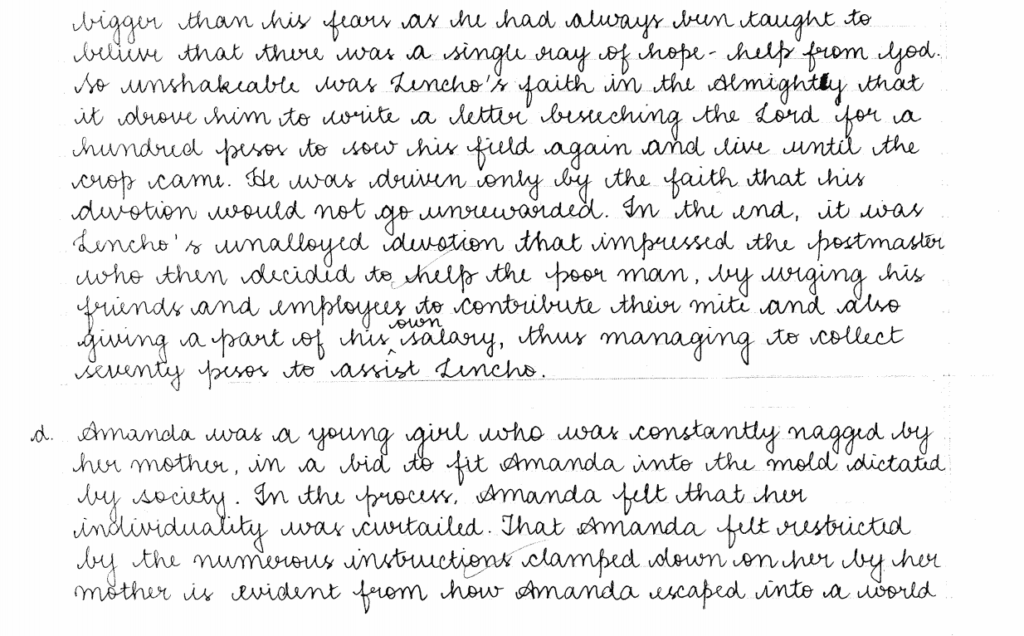 bigger than his fears as he had always been taught to
believe that there was a single ray of hope - help from God.
So unshakeable was Lencho's faith in the Almighty that
it drove him to write a letter beseeching the Lord for a
hundred pesos to sow his field again and live until the
crop came. He was driven only by the faith that his
devotion would not go unrewarded. In the end, it was
Lencho's unalloyed devotion that impressed the postmaster
who then decided to help the poor man, by urging his
friends and employees to contribute their mite and also
giving a part of his own salary, thus managing to collect
seventy pesos to assist Lencho.
d. Amanda was a young girl who was constantly nagged by
her mother, in a bid to fit Amanda into the mold dictated
by society. In the process, Amanda felt that her
individuality was curtailed. That Amanda felt restricted
by the numerous instructions clamped down on her by her
mother is evident from how Amanda escaped into a world